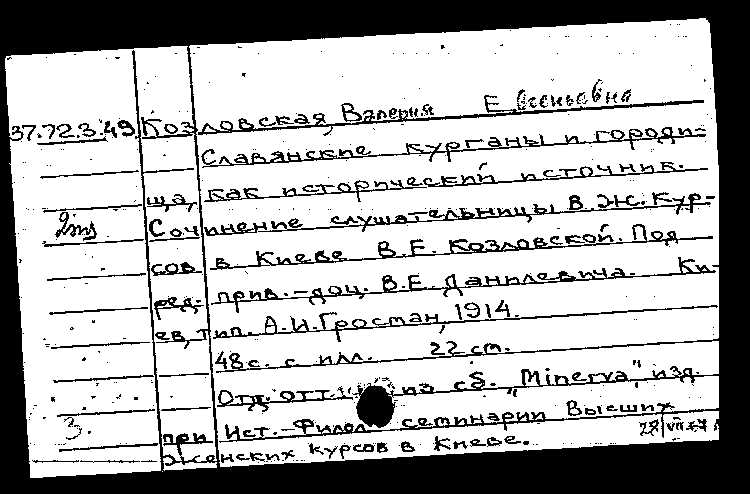 37.72.3.49 Козловская, Валерия Евгеньевна
Славянские курганы и городи-
ща, как исторический источник.
2 инв Сочинение слушательницы В. Ж. Кур-
сов в Киеве В.Е. Козловской. Под
ред. прив.-доц. В.Е. Данилевича. Ки-
ев, тип. А.И. Гросман, 1914.
48 с. с илл. 22 cm.
Отд. отт. из сб. „Minerva", изд.
3. при Ист.-Филол. семинарии Высших
Женских курсов в Киеве.